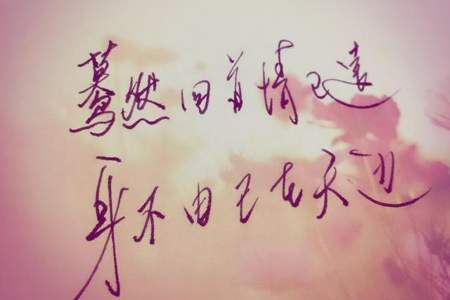 蓦然回首情已远
身不由已在天边